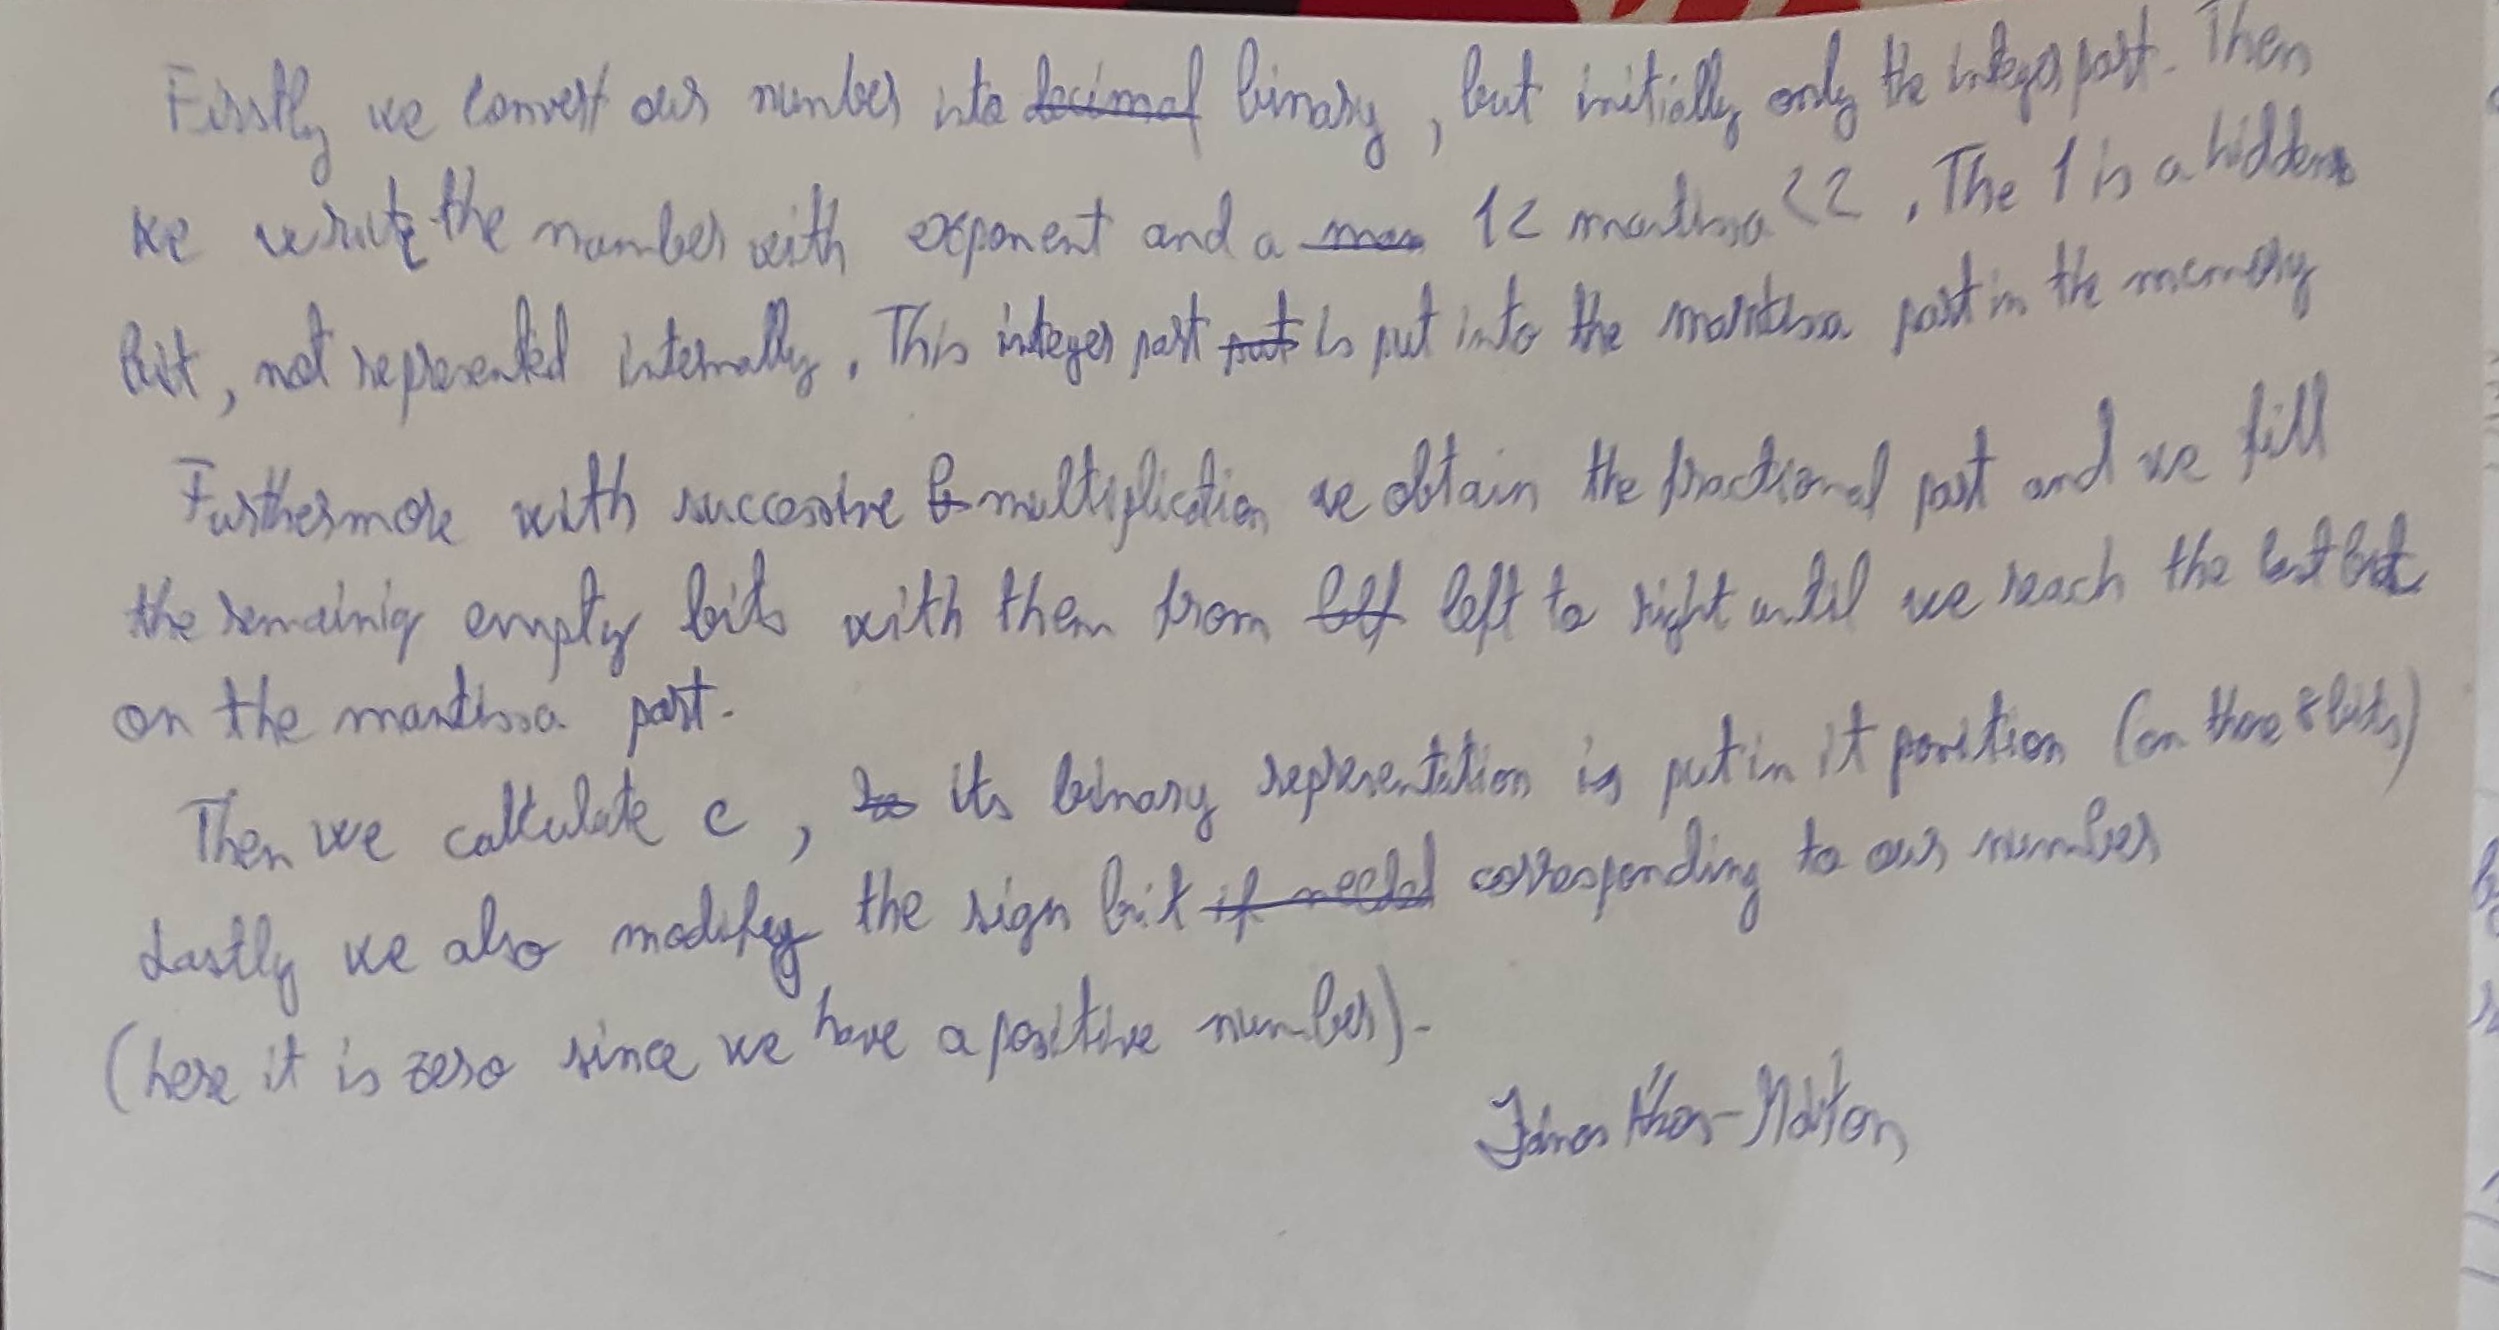 Firstly we convert our number into decimal binary, but initially only the integer part. Then
we write the number with exponent and a man 1< mantissa <2. The 1 is a hidden
bit, not represented internally. This integer part put is put into the mantissa part in the memory
Furthermore with successive multiplication we obtain the fractional part and we fill
the remainig empty bits with them from left to right until we reach the last bit
on the mantissa part.
Then we calculate c, its binary representation is put in it position (on those 8 bits)
Lastly we also modify the sign bit if needed corresponding to our number
(here it is zero since we have a positive number).